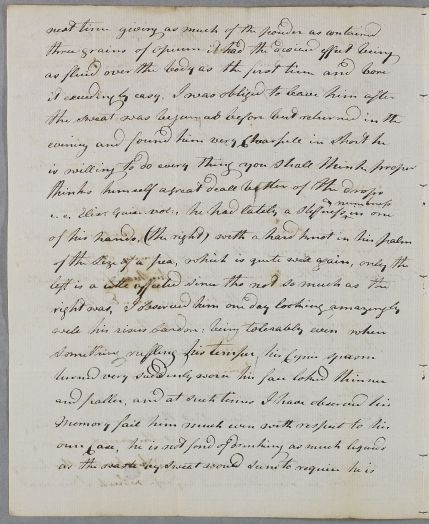 next time giving as much of the powder as contained
three grains of opium it had the desired effect being
as fluid over the body as the first time and bore
it exceedingly easy, I was obliged to leave him after
the sweat was begun, as before but returned in the
evening and found him very Chearfull in short he
is willing to do every thing you shall think proper
thinks himself a great deall better of the drops
i.e. Elixr Guiac. vol:, he had lately a stiffness, & numbness in one
of his hands, (the right) with a hard knot in his palm
of the size of a pea, which is quite well again, only the
left is a little affected since tho not so much as the
right was, I observed him one day looking amazingly
well his risus being tolerably even when
something ruffling his temper, his Cynic spasm
turned very suddenly worse his face looked thinner
and paller, and at such times I have observed his
Memory fail him much even with respect to his
own Case, he is not fond of drinking as much liquids
as the sweat would seem to require he is